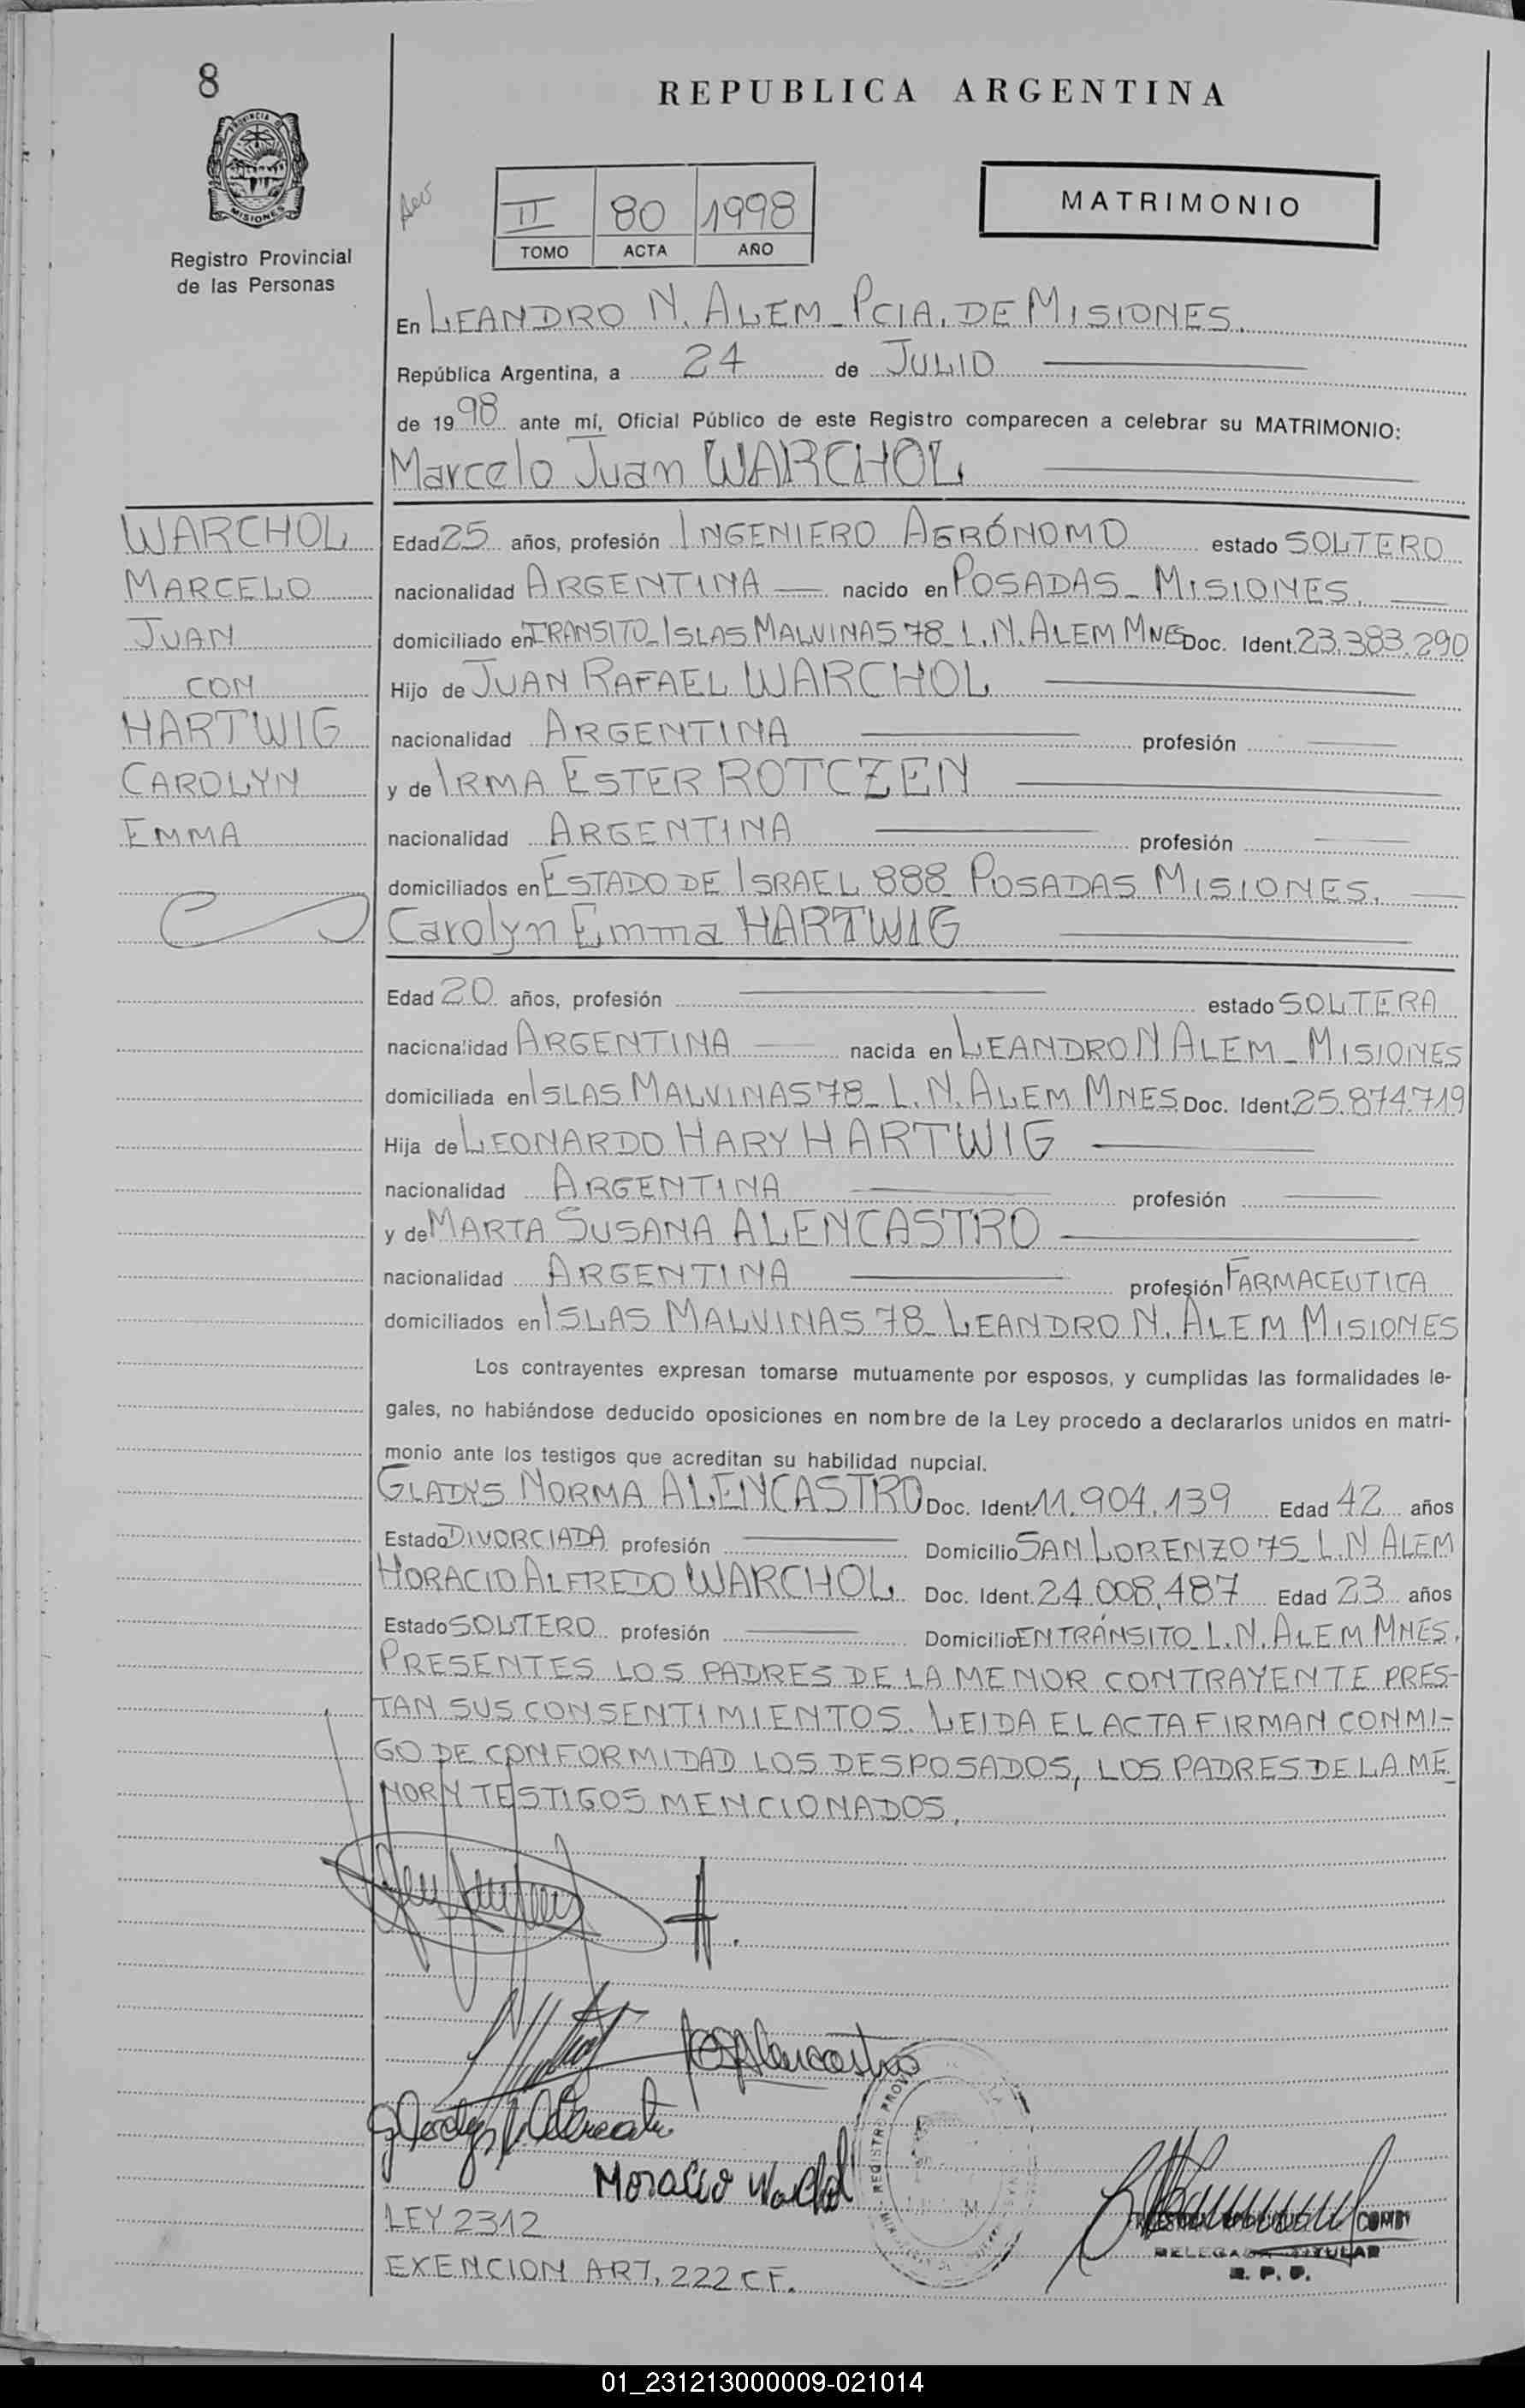 8
REPUBLICA ARGENTINA
PROVINCIA DE
MISIONES
Registro Provincial
de las Personas
II 80 1998
TOMO ACTA AÑO
MATRIMONIO
En LEANDRO N. ALEM_PCIA. DE MISIONES.
República Argentina, a 24 de JULIO
de 1998 ante mí, Oficial Público de este Registro comparecen a celebrar su MATRIMONIO:
Marcelo Juan WARCHOL
WARCHOL
MARCELO
JUAN
CON
HARTWIG
CAROLYN
EMMA
Edad 25 años, profesión INGENIERO AGRÓNOMO estado SOLTERO
nacionalidad ARGENTINA nacido en POSADAS_MISIONES.
domiciliado en TRANSITO_ISLAS MALVINAS 78_L.N.ALEM MNES Doc. Ident. 23.383.290
Hijo de JUAN RAFAEL WARCHOL
nacionalidad ARGENTINA profesión
y de IRMA ESTER ROTCZEN
nacionalidad ARGENTINA profesión
domiciliados en ESTADO DE ISRAEL 888_POSADAS MISIONES.
Carolyn Emma HARTWIG
Edad 20 años, profesión estado SOLTERA
nacionalidad ARGENTINA nacida en LEANDRO N ALEM_MISIONES
domiciliada en ISLAS MALVINAS 78_L.N.ALEM MNES Doc. Ident. 25.874.719
Hija de LEONARDO HARY HARTWIG
nacionalidad ARGENTINA profesión
y de MARTA SUSANA ALENCASTRO
nacionalidad ARGENTINA profesión FARMACEUTICA
domiciliados en ISLAS MALVINAS 78_LEANDRO N. ALEM MISIONES
Los contrayentes expresan tomarse mutuamente por esposos, y cumplidas las formalidades le-
gales, no habiéndose deducido oposiciones en nombre de la Ley procedo a declararlos unidos en matri-
monio ante los testigos que acreditan su habilidad nupcial.
GLADYS NORMA ALENCASTRO Doc. Ident. 11.904.139 Edad 42 años
Estado DIVORCIADA profesión Domicilio SAN LORENZO 75_L.N ALEM
HORACIO ALFREDO WARCHOL Doc. Ident. 24.008.487 Edad 23 años
Estado SOLTERO profesión Domicilio EN TRÁNSITO_L.N.ALEM MNES.
PRESENTES LOS PADRES DE LA MENOR CONTRAYENTE PRES-
TAN SUS CONSENTIMIENTOS. LEIDA EL ACTA FIRMAN CONMI-
GO DE CONFORMIDAD LOS DESPOSADOS, LOS PADRES DE LA ME_
NOR Y TESTIGOS MENCIONADOS.
Horacio Warchol
LEY 2312
EXENCION ART. 222 C F.
REGISTRO PROV
DELEGADA TITULAR
R. P. P.
01_231213000009-021014